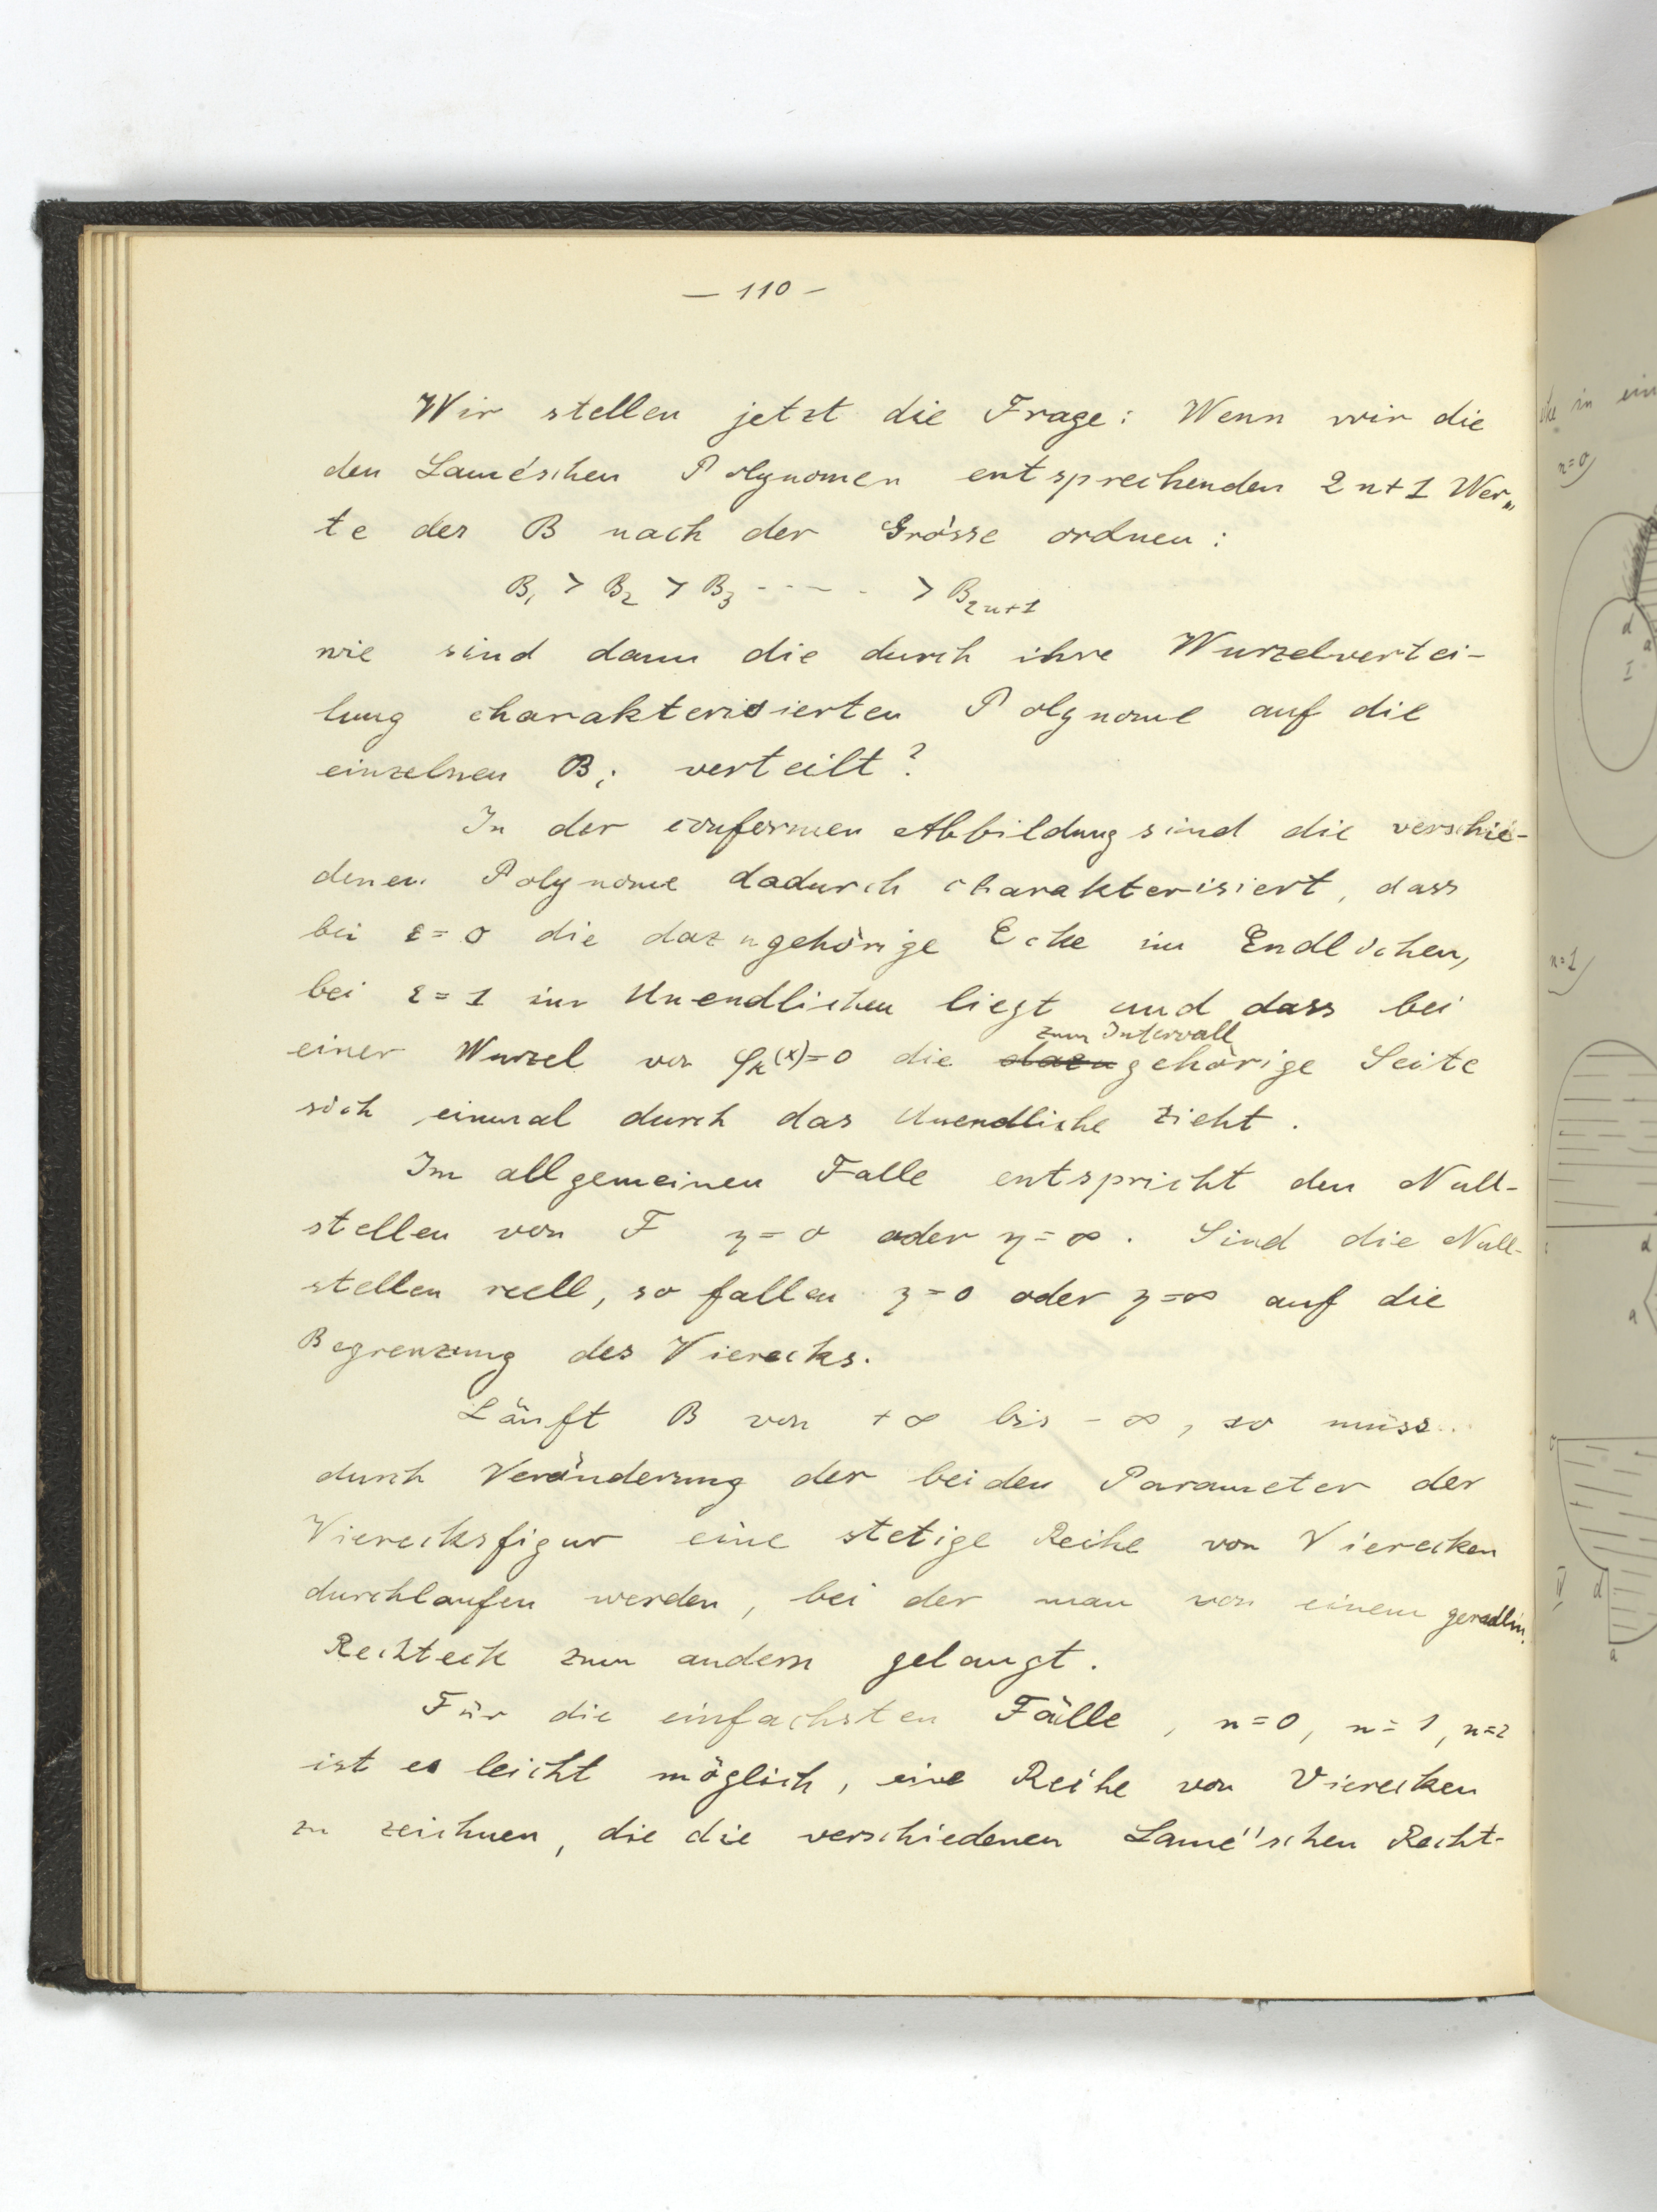 — 110 —
Wir stellen jetzt die Frage: Wenn wir die
den Lamé'schen Polynomen entsprechenden 2n+1 Wer„
te der B nach der Grösse ordnen:
B₁ > B₂ > B₃ - - - - . > B₂ₙ₊₁
wie sind dann die durch ihre Wurzelvertei-
lung charakterisierten Polynome auf die
einzelnen Bᵢ verteilt?
In der conformen Abbildung sind die verschie-
denen Polynome dadurch charakterisiert, dass
bei ε=0 die dazugehörige Ecke im Endlichen,
bei ε=1 im Unendlichen liegt und dass bei
zum Intervall
einer Wurzel von φₖ(x)=0 die ~~dazu~~gehörige Seite
sich einmal durch das Unendliche zieht.
Im allgemeinen Falle entspricht den Null-
stellen von F η=0 oder η=∞. Sind die Null-
stellen reell, so fallen η=0 oder η=∞ auf die
Begrenzung des Vierecks.
Läuft B von +∞ bis -∞, so muss
durch Veränderung der beiden Parameter der
Vierecksfigur eine stetige Reihe von Vierecken
durchlaufen werden, bei der man von einem geradlin.
Rechteck zum andern gelangt.
Für die einfachsten Fälle, n=0, n=1, n=2
ist es leicht möglich, eine Reihe von Vierecken
zu zeichnen, die die verschiedenen Lamé'schen Recht-
in ein
n=0)
d
I
n=1)
d
a
IV d
a